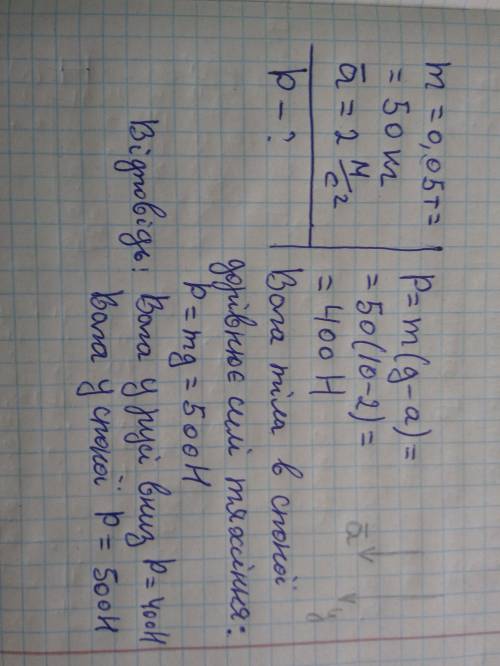 m = 0,05т =
= 50 кг
a̅ = 2 м/с²
P - ?
P = m(g-a) =
= 50(10-2) =
= 400 Н
Вага тіла в спокої
дорівнює силі тяжіння:
P = mg = 500Н
Відповідь: Вага у русі вниз P = 400Н
Вага у спокої P = 500Н
a̅